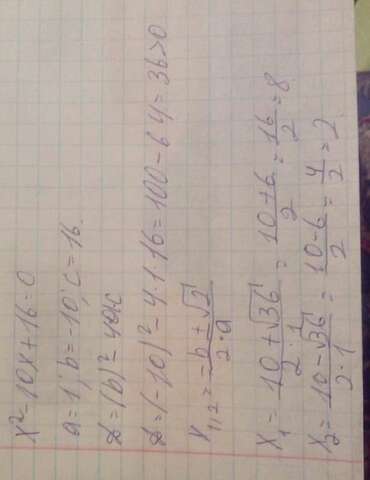 x²-10x+16=0
a=1; b=-10; c=16.
D=(b)²-4ac
D=(-10)²-4·1·16=100-64=36>0
x₁,₂=(-b±√D)/(2·a)
x₁=(10+√36)/(2·1)=(10+6)/2=16/2=8
x₂=(10-√36)/(2·1)=(10-6)/2=4/2=2